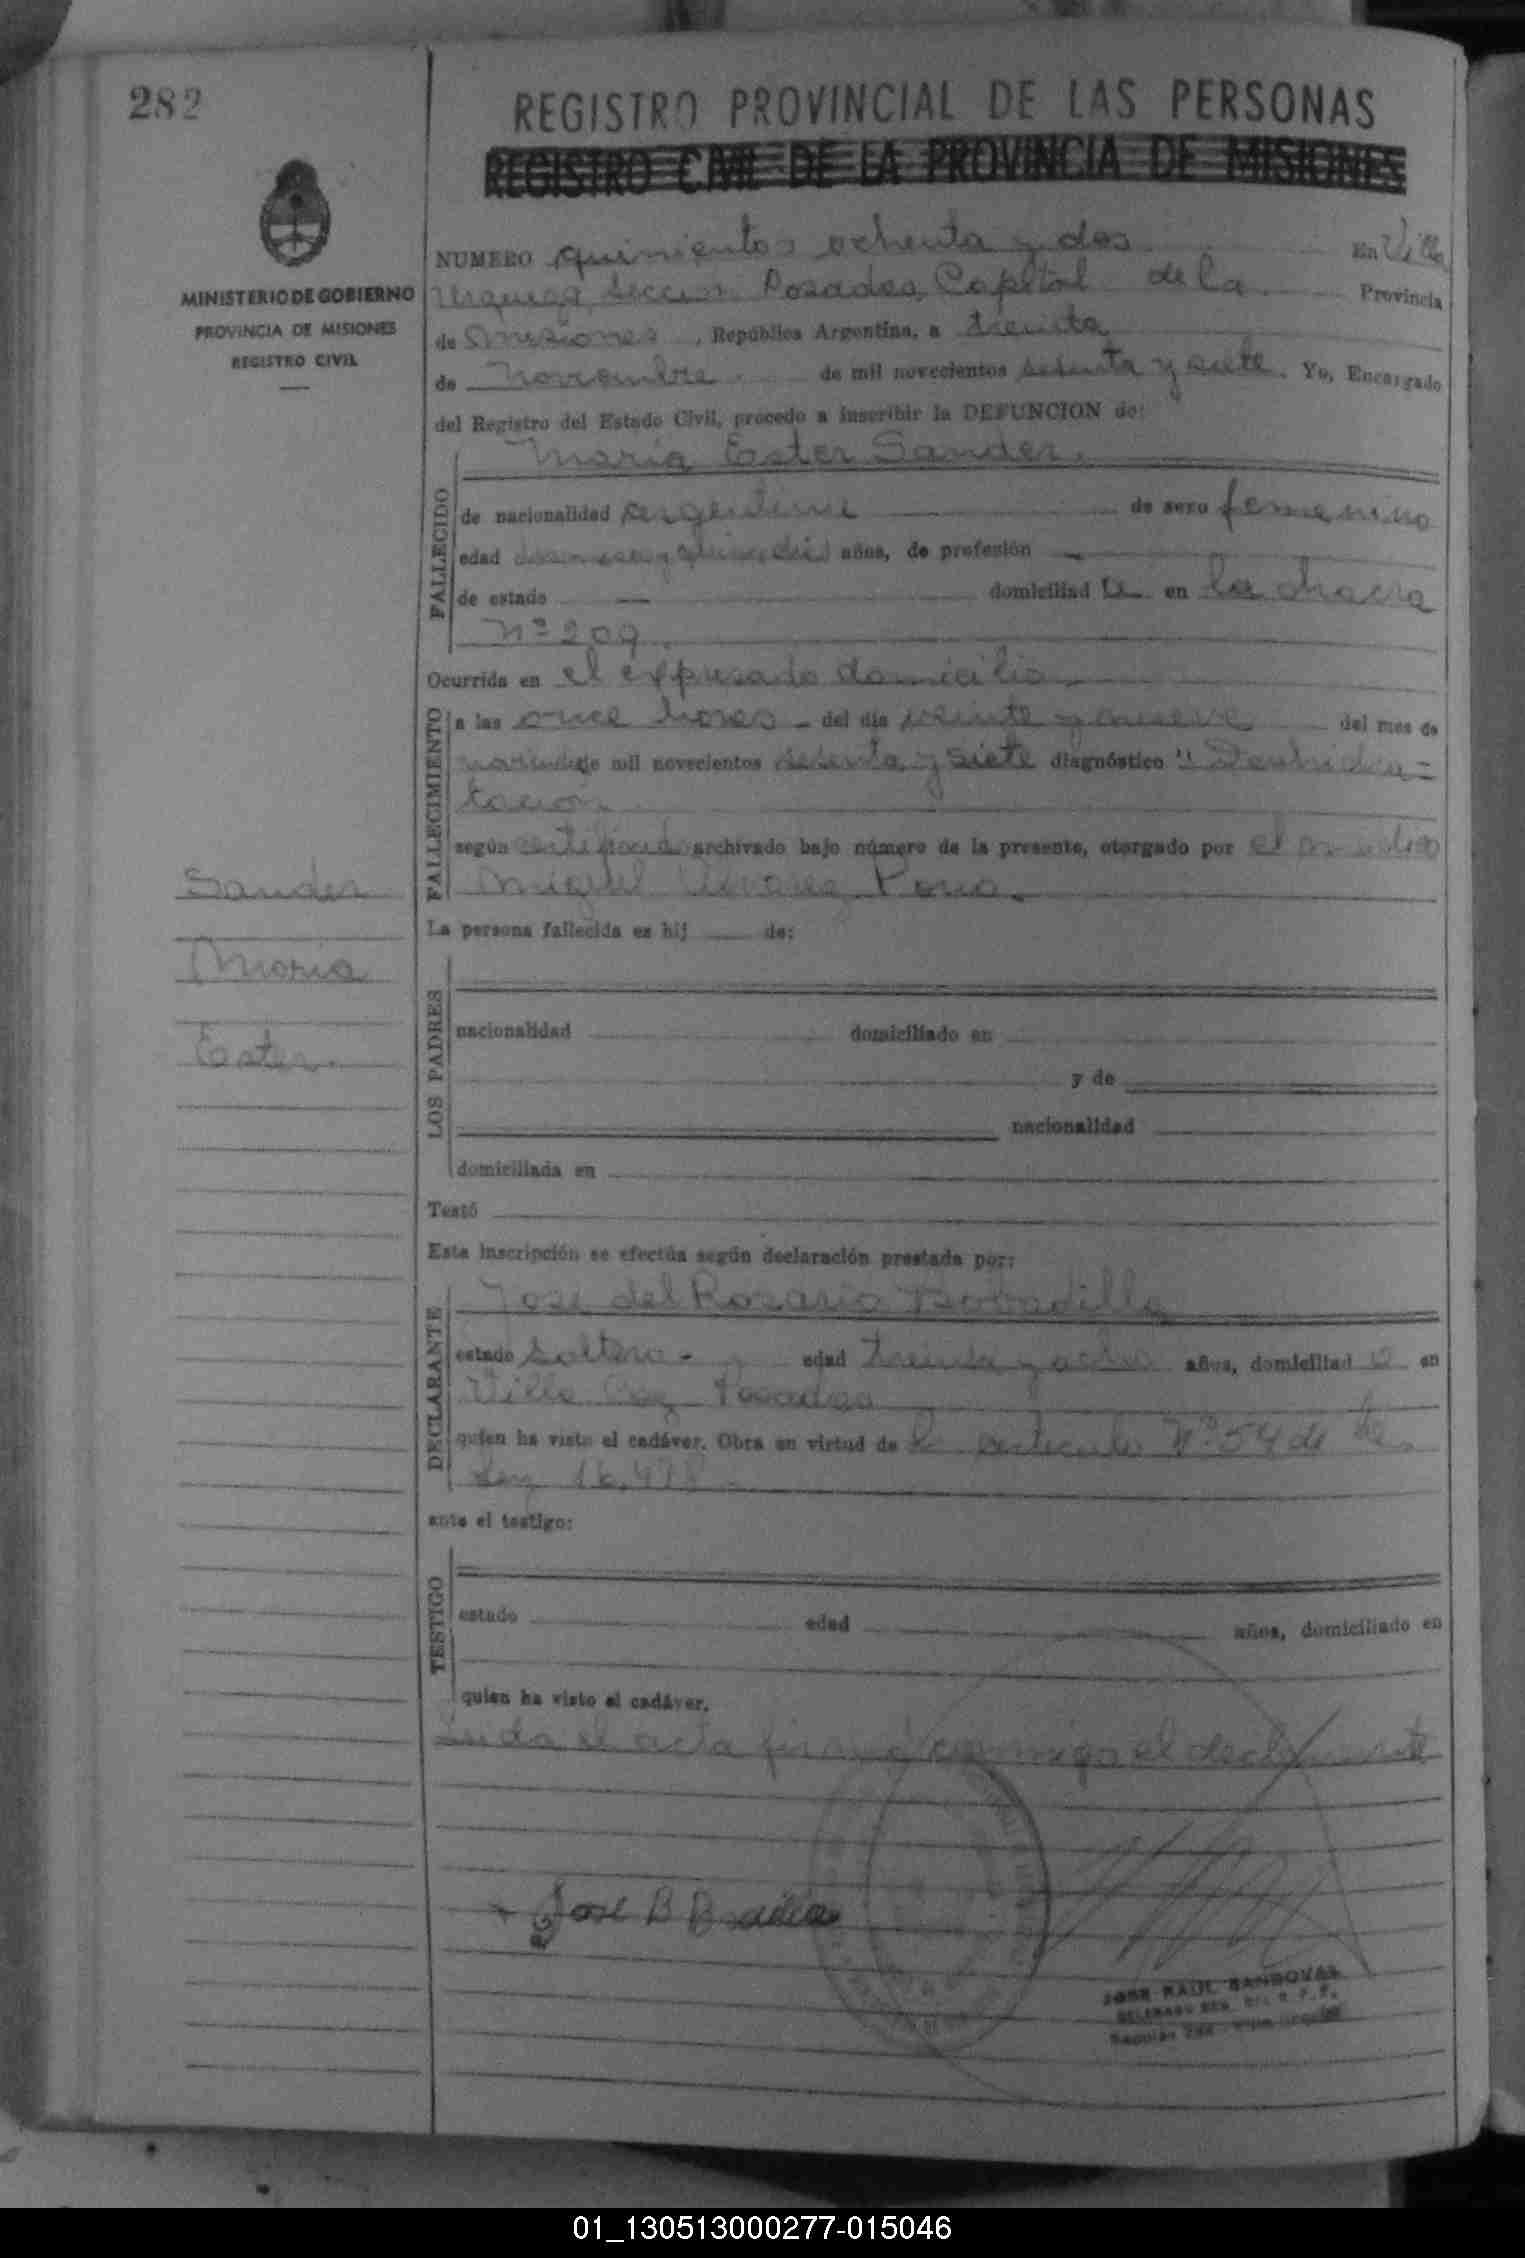 282
REGISTRO PROVINCIAL DE LAS PERSONAS
REGISTRO CIVIL DE LA PROVINCIA DE MISIONES
MINISTERIO DE GOBIERNO
PROVINCIA DE MISIONES
REGISTRO CIVIL
NUMERO quinientos ochenta y dos En Villa
Urquiza, Sección Posadas, Capital de la Provincia
de Misiones, República Argentina, a treinta
de noviembre de mil novecientos setenta y siete. Yo, Encargado
del Registro del Estado Civil, procedo a inscribir la DEFUNCION de:
Maria Ester Sander.
FALLECIDO
de nacionalidad argentina de sexo femenino
edad años, de profesión —
de estado — domiciliad a en la chacra
Nº 209.
Ocurrida en el expresado domicilio.
FALLECIMIENTO
a las once horas - del día veinte y nueve del mes de
de mil novecientos setenta y siete diagnóstico " Deshidra=
tación
según certificado archivado bajo número de la presente, otorgado por el médico
Miguel Alvarez
Sander
Maria
Ester.
La persona fallecida es hij de:
LOS PADRES
nacionalidad domiciliado en
y de
nacionalidad
domiciliada en
Testó
Esta inscripción se efectúa según declaración prestada por:
DECLARANTE
Jose del Rosario Bobadilla
estado soltero - edad treinta y ocho años, domiciliad o en
Villa Posadas
quien ha visto el cadáver. Obra en virtud de articulo Nº 54 de la
Ley 16.478 -
ante el testigo:
TESTIGO
estado edad años, domiciliado en
quien ha visto el cadáver.
Leida el acta firma conmigo el declarante
Jose B
JOSE RAUL SANDOVAL
01_130513000277-015046